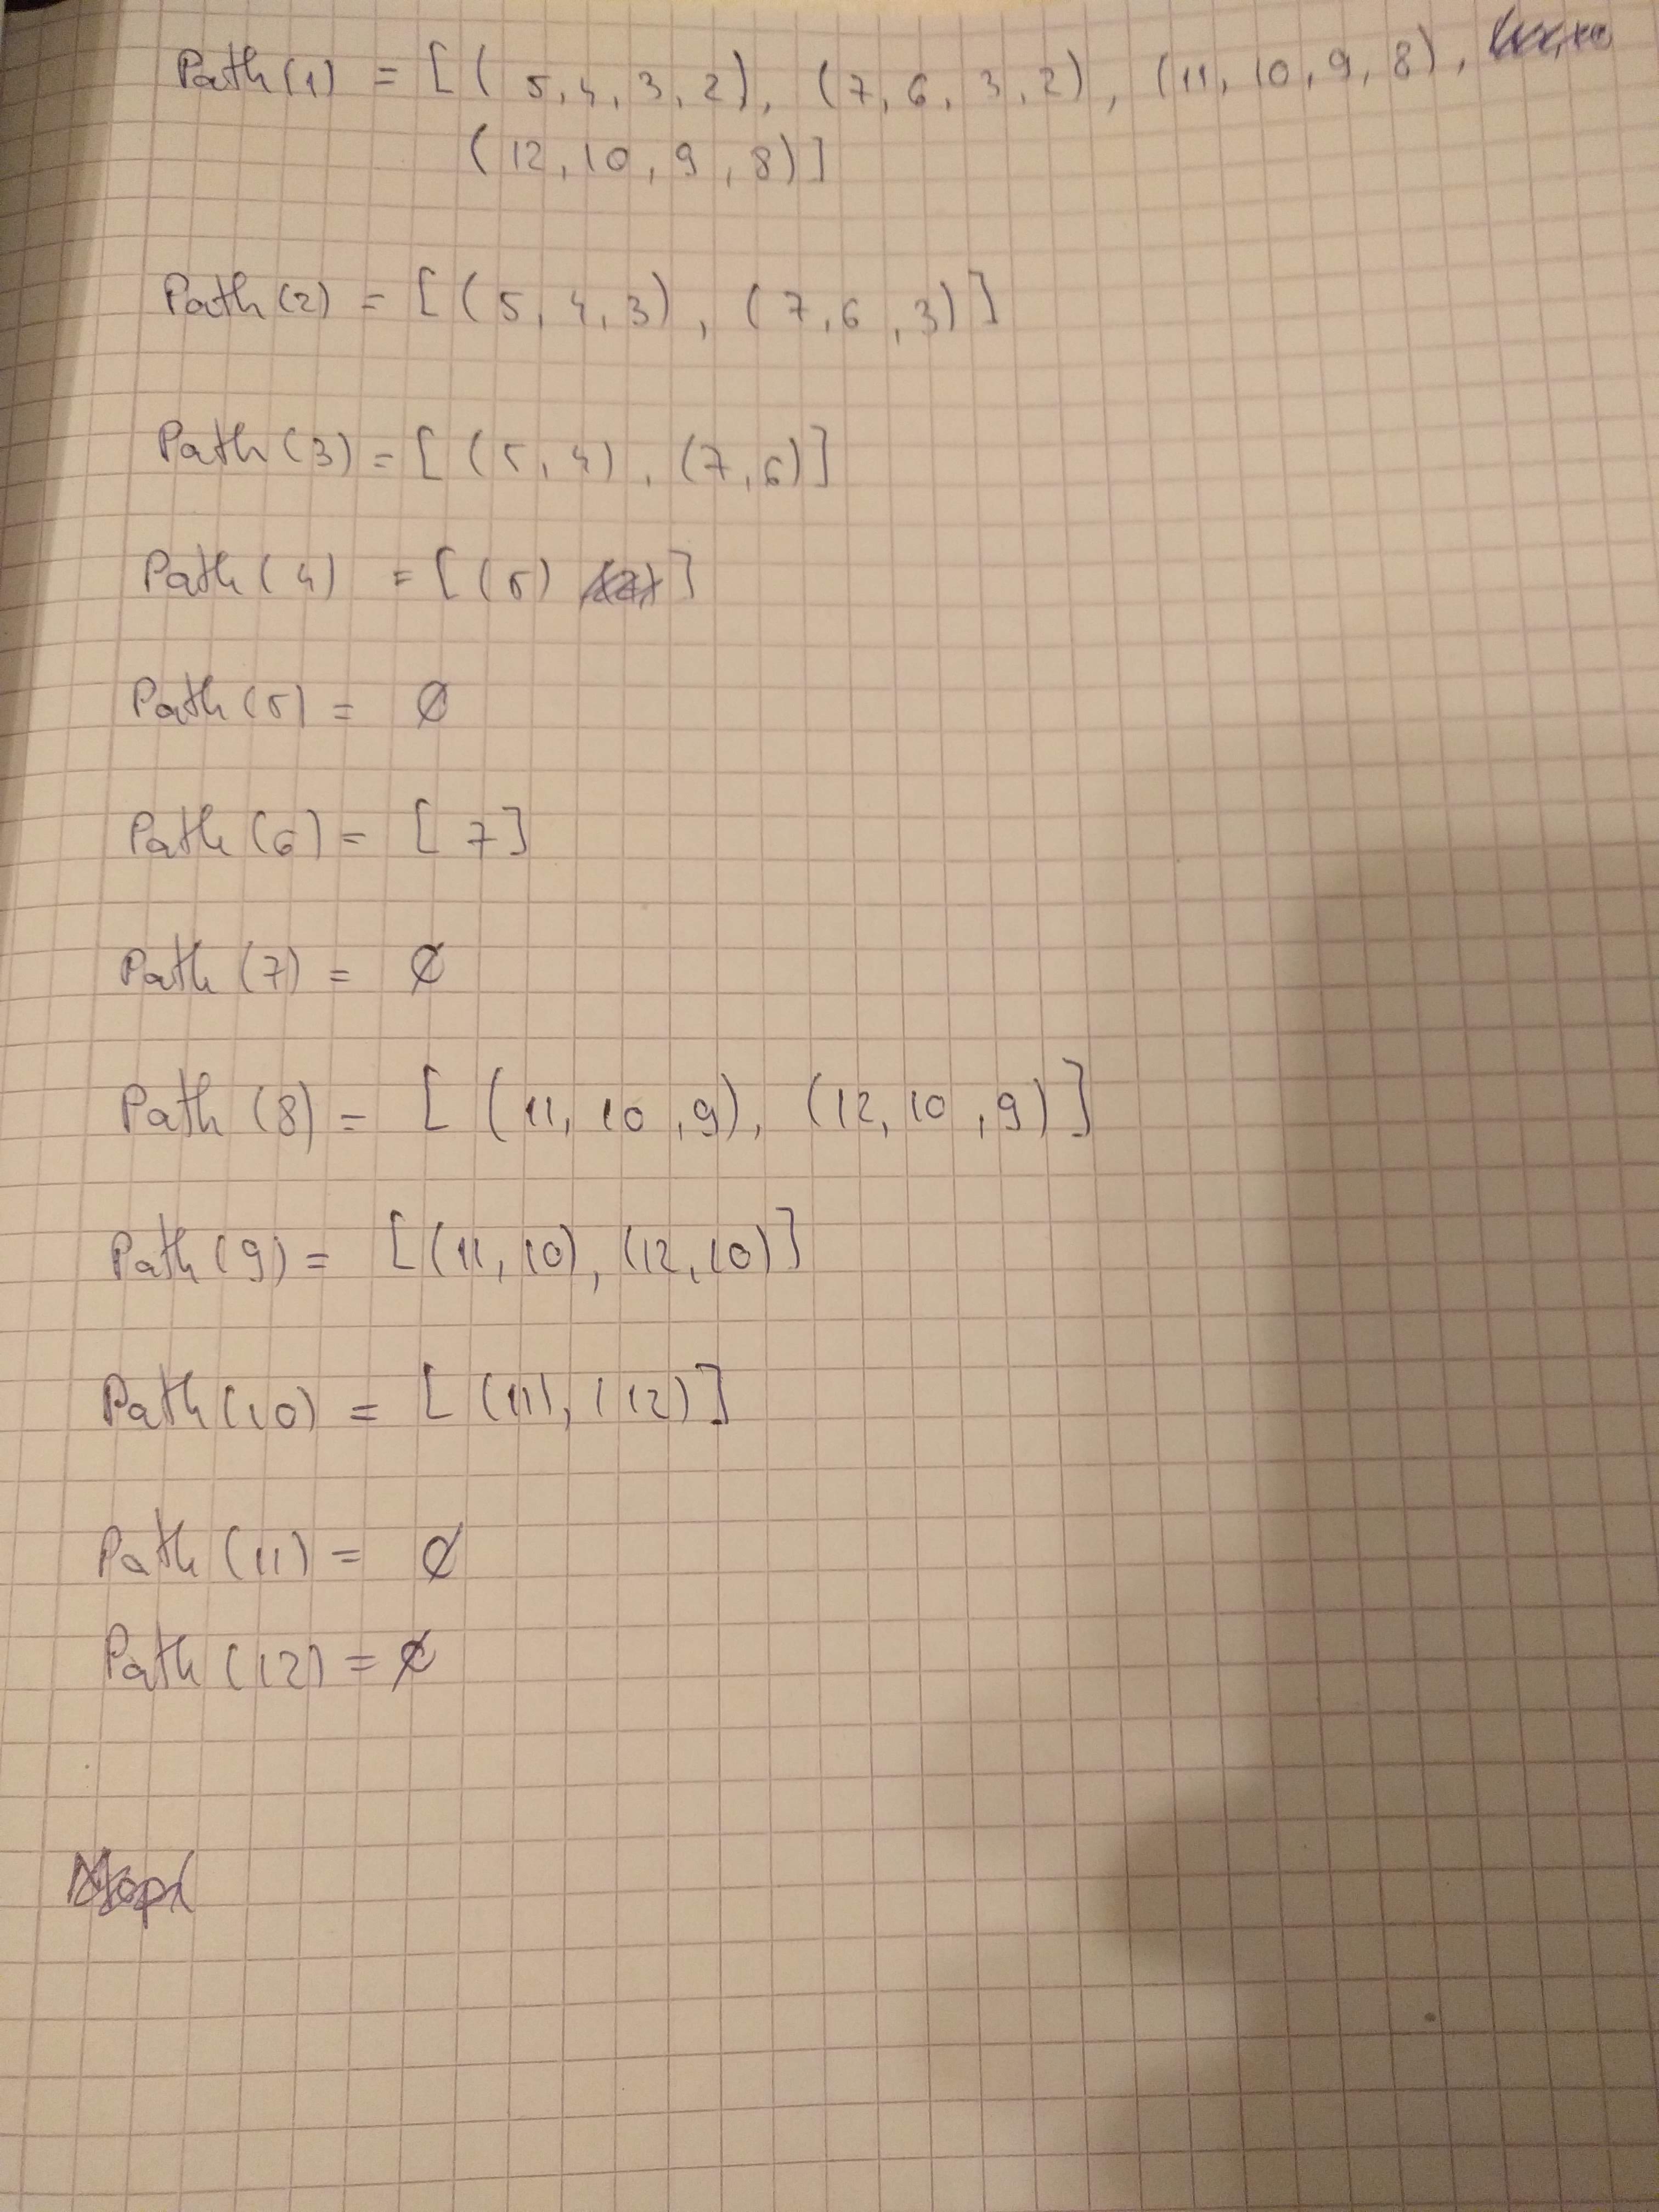 Path(1) = [( 5,4,3,2), (7,6,3,2), (11,10,9,8),
(12,10,9,8)]
Path(2) = [(5,4,3), (7,6,3)]
Path(3) = [(5,4), (7,6)]
Path(4) = [(5)]
Path(5) = Ø
Path(6) = [7]
Path(7) = Ø
Path(8) = [(11,10,9), (12,10,9)]
Path(9) = [(11,10), (12,10)]
Path(10) = [(11), (12)]
Path(11) = Ø
Path(12) = Ø